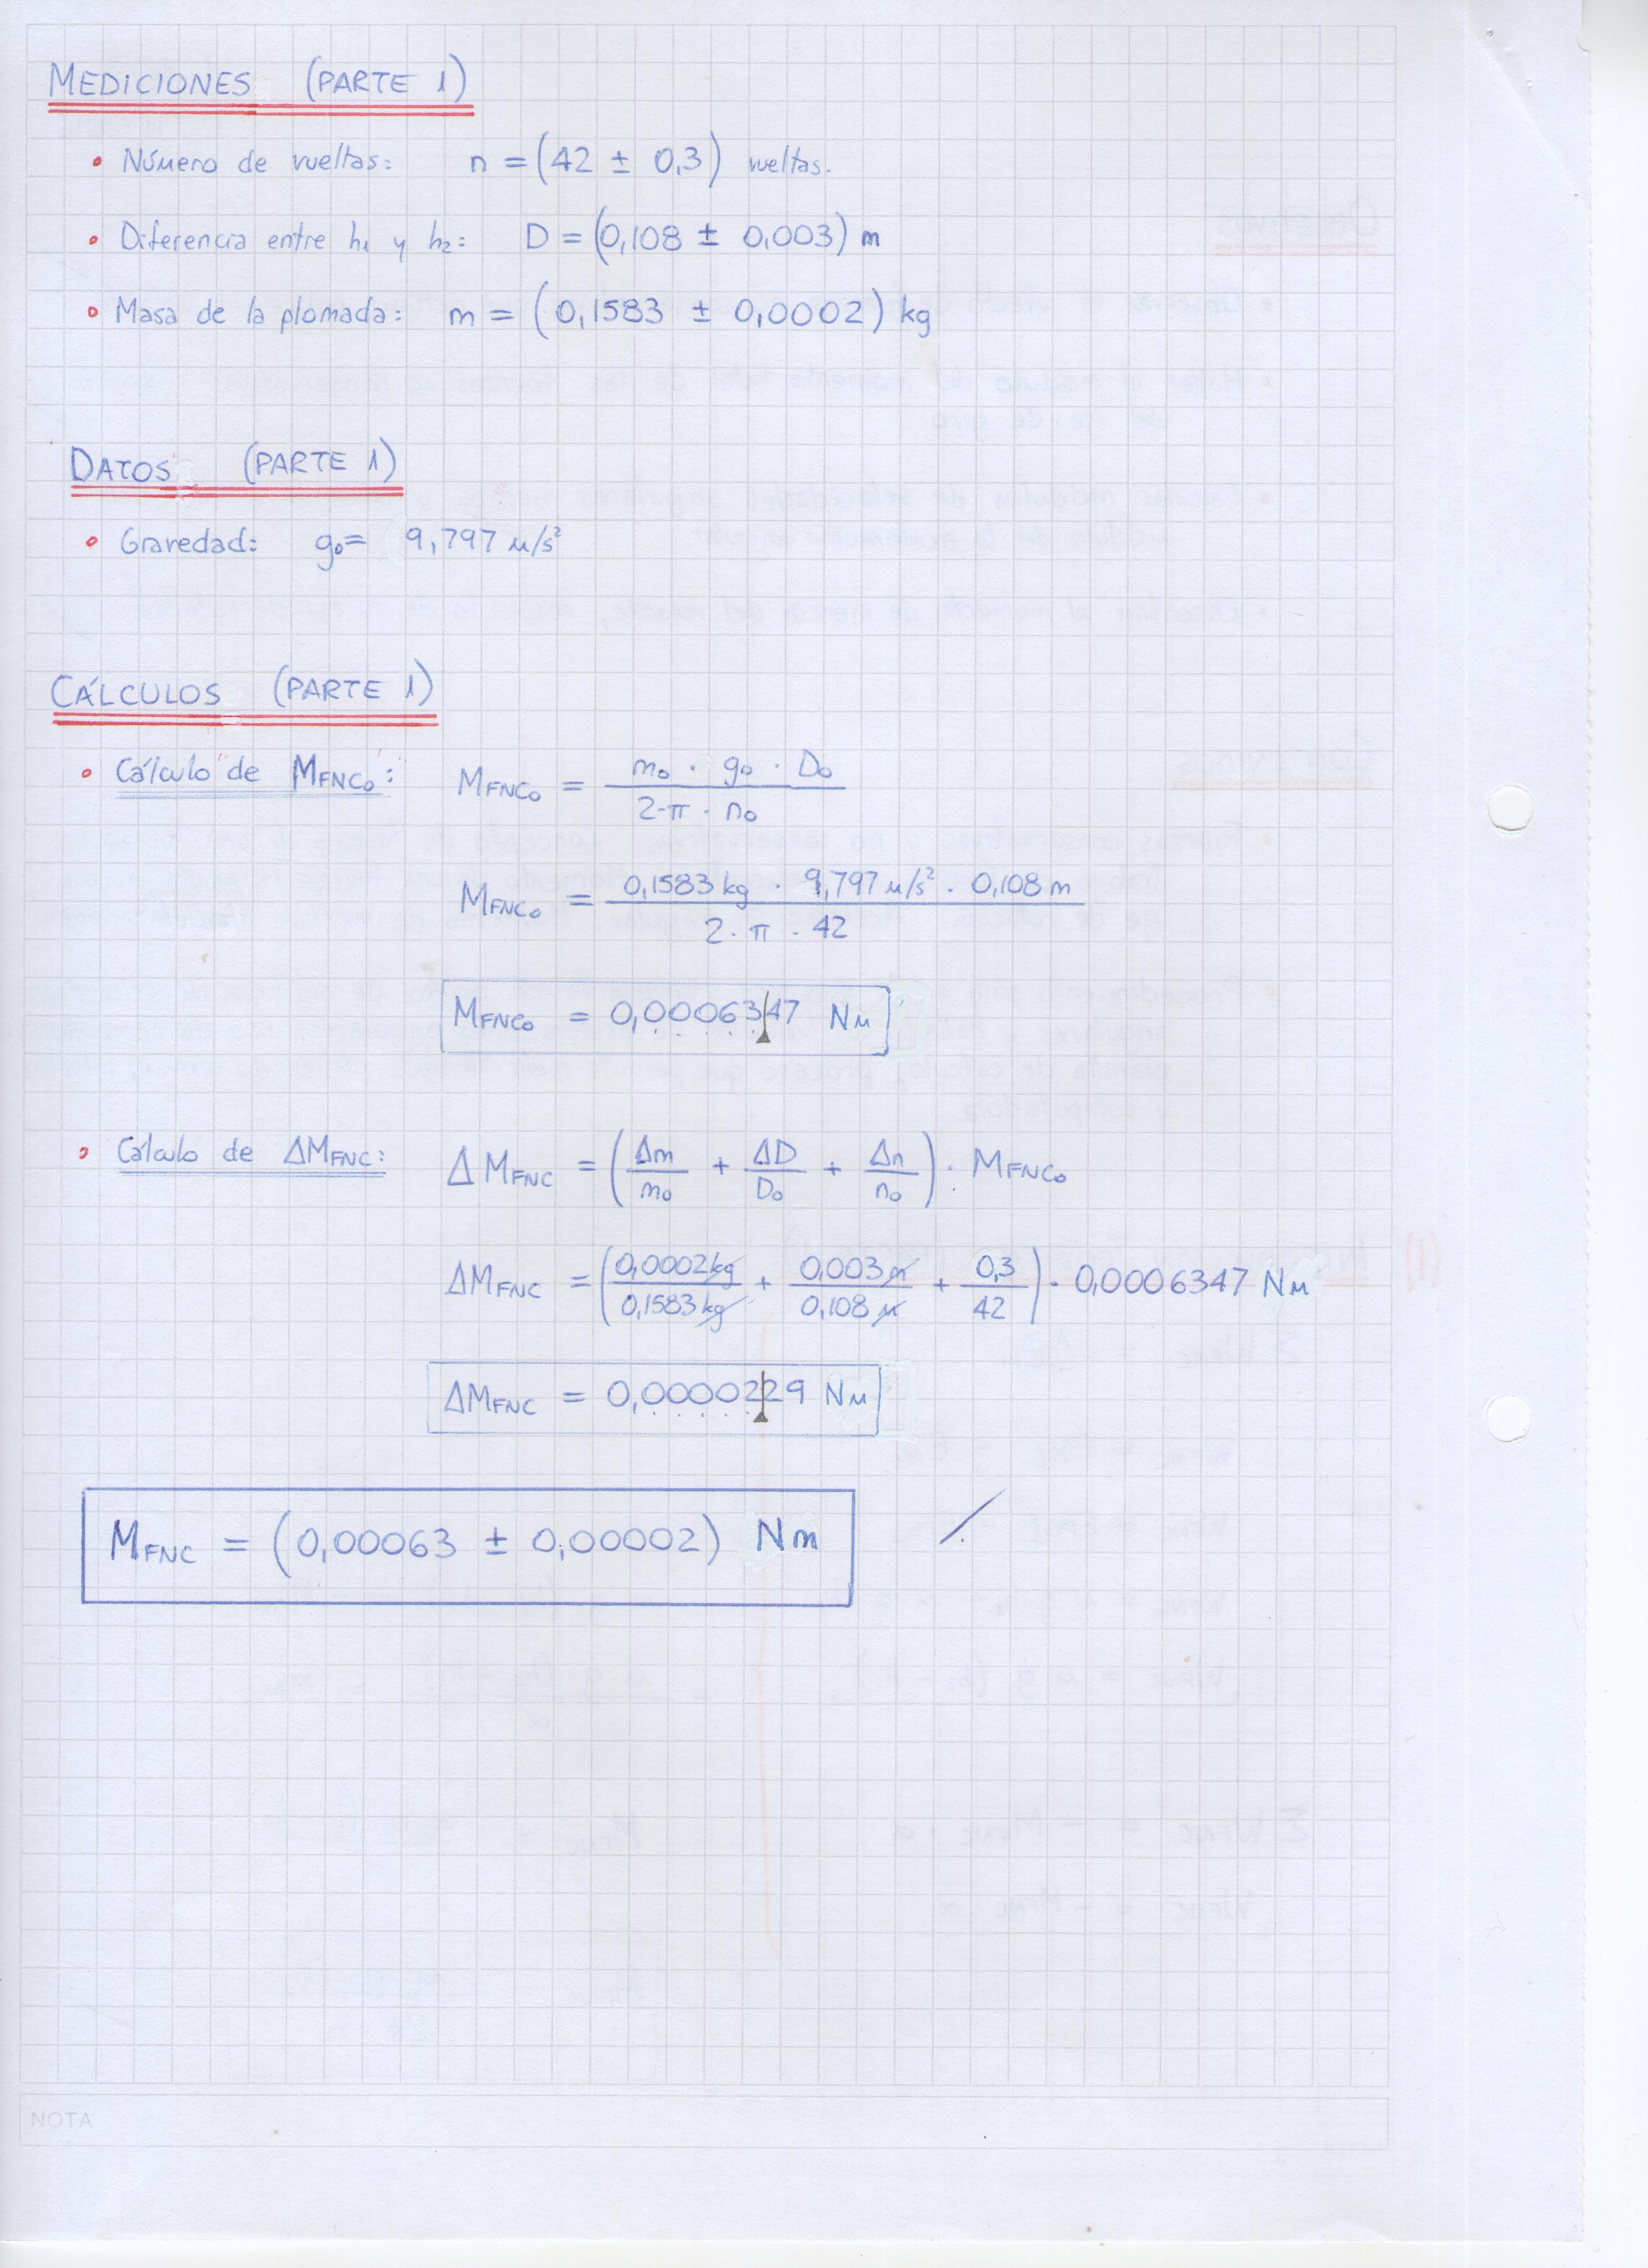 MEDICIONES (PARTE 1)
• Número de vueltas: n = (42 ± 0,3) vueltas.
• Diferencia entre h₁ y h₂: D = (0,108 ± 0,003) m
• Masa de la plomada: m = (0,1583 ± 0,0002) kg
DATOS (PARTE 1)
• Gravedad: g₀ = 9,797 m/s²
CÁLCULOS (PARTE 1)
• Cálculo de MFNC₀: MFNC₀ = m₀ · g₀ · D₀ / 2·π · n₀
MFNC₀ = 0,1583 kg · 9,797 m/s² · 0,108 m / 2 · π · 42
MFNC₀ = 0,00063|47 Nm
• Cálculo de ΔMFNC: ΔMFNC = (Δm/m₀ + ΔD/D₀ + Δn/n₀) · MFNC₀
ΔMFNC = (0,0002 kg/0,1583 kg + 0,003 m/0,108 m + 0,3/42) · 0,0006347 Nm
ΔMFNC = 0,00002|29 Nm
MFNC = (0,00063 ± 0,00002) Nm
NOTA